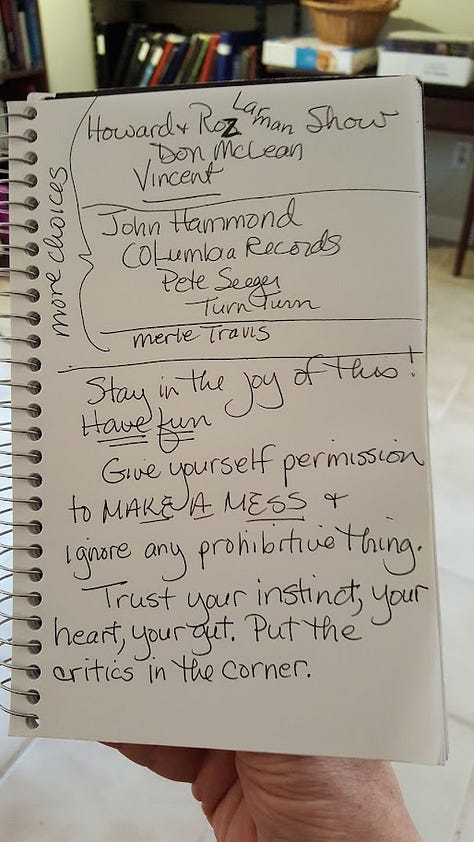 more choices
Howard & Roz Larman Show
Don McLean
Vincent
John Hammond
Columbia Records
Pete Seeger
Turn Turn
merle Travis
Stay in the joy of this!
Have fun
Give yourself permission
to MAKE A MESS &
ignore any prohibitive thing.
Trust your instinct, your
heart, your gut. Put the
critics in the corner.